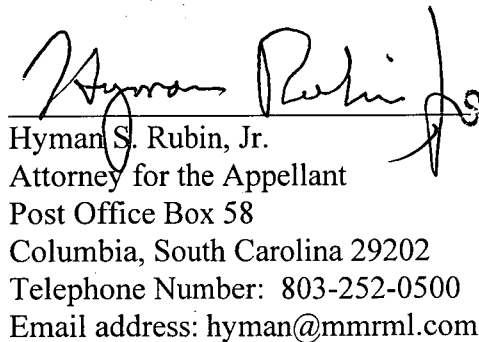 Hyman Rubin Jr
Hyman S. Rubin, Jr.
Attorney for the Appellant
Post Office Box 58
Columbia, South Carolina 29202
Telephone Number: 803-252-0500
Email address: hyman@mmrml.com